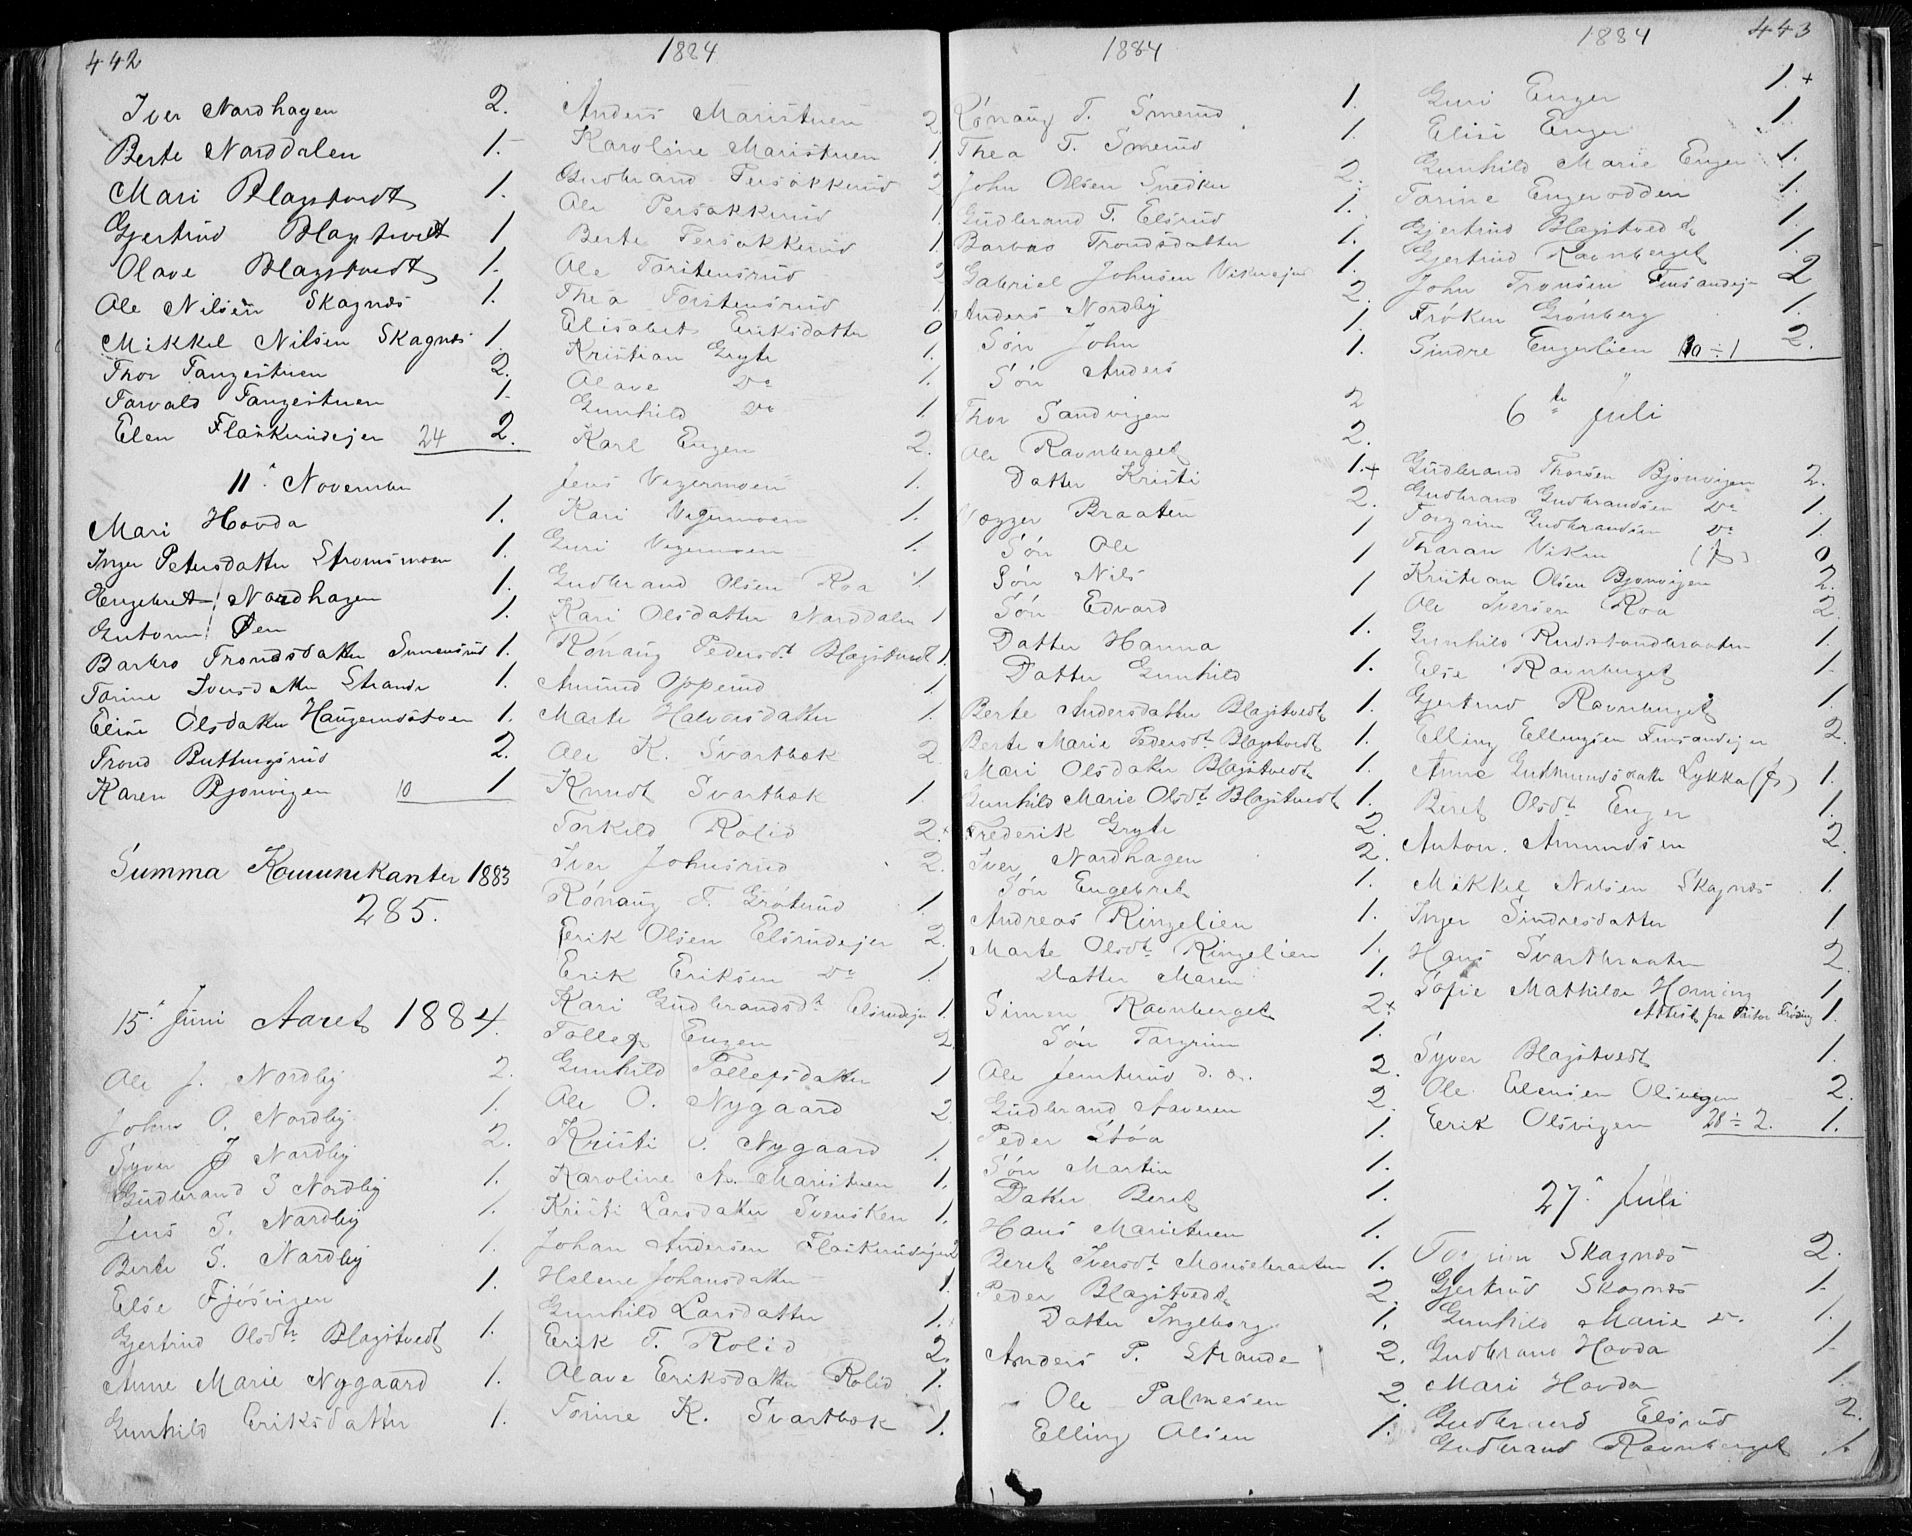 442
1884
Iver Nordhagen 2.
Berte Norddalen 1.
Mari Blagstvedt 1.
Gjertrud Blagstvedt 1
Olave Blagstvedt 1.
Ole Nilsen Skagnæs 1.
Mikkel Nilsen Skagnæs 1.
Thor Tangestuen 2.
Torvald Tangestuen 1.
Elen Flaskerudejer 24 2.
11. November
Mari Hovda 1.
Inger Petersdatter Strømsmoen 1.
Engebret Nordhagen 1.
Gutorm Øen 1.
Barbro Trondsdatter 1.
Torine Iversdatter Strande 1.
Elise Olsdatter Haugerudstuen 1.
Trond Buttingsrud 2.
Karen Bjonvigen 10 1
Summa Kommunikanter 1883
285.
15. Juni Aaret 1884.
Ole J. Nordby 2.
John O. Nordby 1.
Syver J Nordby 2.
Gudbrand S Nordby 1.
Jens S. Nordby 1.
Berte S. Nordby 1.
Else Fjøsvigen 1.
Gjertrud Olsdtr Blagstvedt 1.
Anne Marie Nygaard 1.
Gunhild Eriksdatter 1.
Anders Maristuen 2
Karoline Maristuen 1.
Gudbrand Persøkkerud 2
Ole Persøkkerud 1
Berte Persøkkerud 1.
Ole Torstensrud 2
Thea Torstensrud 1
Elisabet Eriksdatter 0
Kristian Gryte 1.
Olave Do 1.
Gunhild Do 1
Karl Engen 2.
Jens Vegermoen 1.
Kari Vegermoen 1.
Guri Vegermoen 1.
Gudbrand Olsen Roa 1.
Kari Olsdatter Norddalen 1
Rønaug Pedersdt Blagstvedt 1.
Amund Opperud 1
Marte Halvorsdatter 1.
Ole K. Svartbæk 2
Knudt Svartbæk 1.
Torkild Rolid 2
Iver Johnsrud 2.
Rønaug T. Grøterud 1.
Erik Olsen Elsrudejer 2.
Erik Eriksen Do 1.
Kari Gudbrandsdt Elsrudejer 1.
Tollef Engen 2
Gunhild Tollefsdatter 1
Ole O. Nygaard 2
Kristi O. Nygaard 1.
Karoline A. Maristuen 1.
Kristi Larsdatter Svensken 1.
Johan Andersen Flaskerudejer 2
Helene Johansdatter 1
Gunhild Larsdatter 1.
Erik T. Rolid 2.
Olave Eriksdatter Rolid 1.
Torine K. Svartbæk 1.
1884
443
1884
Rønaug T. Smerud 1.
Thea T. Smerud 1.
John Olsen Snedker 2.
Gudbrand T. Elsrud 1.
Barbro Trondsdatter 1.
Gabriel Johnsen Vikerejer 1.
Anders Nordby 2.
Søn John 1.
Søn Anders 1.
Thor Sandvigen 2
Ole Ravnberget 2.
Datter Kristi 1.+
Braaten 2.
Søn Ole 1
Søn Nils 1
Søn Edvard 1
Datter Hanna 1.
Datter Gunhild 1.
Berte Andersdatter Blagstvedt 1.
Berte Marie Pedersdt Blagstvedt 1.
Mari Olsdatter Blagstvedt 1.
Gunhild Marie Olsdt Blagstvedt 1.
Frederik Gryte 2.
Iver Nordhagen 2.
Søn Engebret 1.
Andreas Ringelien 1.
Marte Olsdt Ringelien 1.
Datter Maren 1.
Simen Ravnberget 2+
Søn Torgrim 1.
Ole Jemterud d. æ. 2.
Gudbrand Haveren 2
Peder Støa 1.
Søn Martin 1.
Datter Beret 1.
Hans Maristuen 1.
Beret Iversdt Monsebraaten 1.
Peder Blagstvedt 2.
Datter Ingeborg 1.
Anders P. Strande 2.
Ole Palmesen 2.
Elling Olsen 1.
Guri Enger 1.+
Elise Enger 1
Gunhild Marie Enger 1.
Torine Engerodden 1.
Gjertrud Blagstvedt 1.
Gjertrud Ravnberget 1.
John Tronsen Finsandejer 2
Frøken Grønberg 1.
Sindre Engerlien ÷ 1 2.
6te Juli
Gudbrand Thorsen Bjonvigen 2.
Gudbrand Gudbrandsen Do 1.
Torgrim Gudbrandsen Do 1.
Tharan Viken (f) 0
Kristian Olsen Bjonvigen 2.
Ole Iversen Roa 2.
Gunhild Rudstandbraaten 1.
Else Ravnberget 1.
Gjertrud Ravnberget 1.
Elling Ellingsen Finsandejer 2.
Anne Gudmundsdatter Lykkja (f) 1.
Beret Olsdt Enger 1.
Anton Amundsen 2.
Mikkel Nilsen Skagnæs 1.
Inger Sindresdatter 1
Hans Svartbraaten 2.
Sofie Mathilde Horning 1
Attest fra Pastor 1.
Syver Blagstvedt 1.
Ole Elensen Olsvigen 2.
Erik Olsvigen 28 ÷ 2. 1.
27. Juli
Torgrim Skagnæs 2.
Gjertrud Skagnæs 1.
Gunhild Marie Do 1.
Gudbrand Hovda 1.
Mari Hovda 1.
Gudbrand Elsrud 2.
Gudbrand Ravnberget 1.